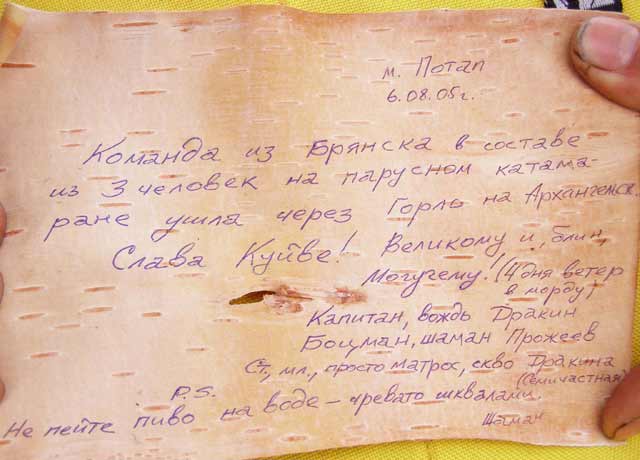 м. Потап
6.08.05г.
Команда из Брянска в составе
из 3 человек на парусном катама-
ране ушла через Горло на Архангельск.
Слава Куйве! Великому и, блин,
Могучему! (4 дня ветер
в морду)
Капитан, вождь Дракин
Боцман, шаман Прожеев
Ст, мл., просто матрос, скво Дракина
(Семичастная)
P.S.
Не пейте пиво на воде – чревато шквалами.
Шаман